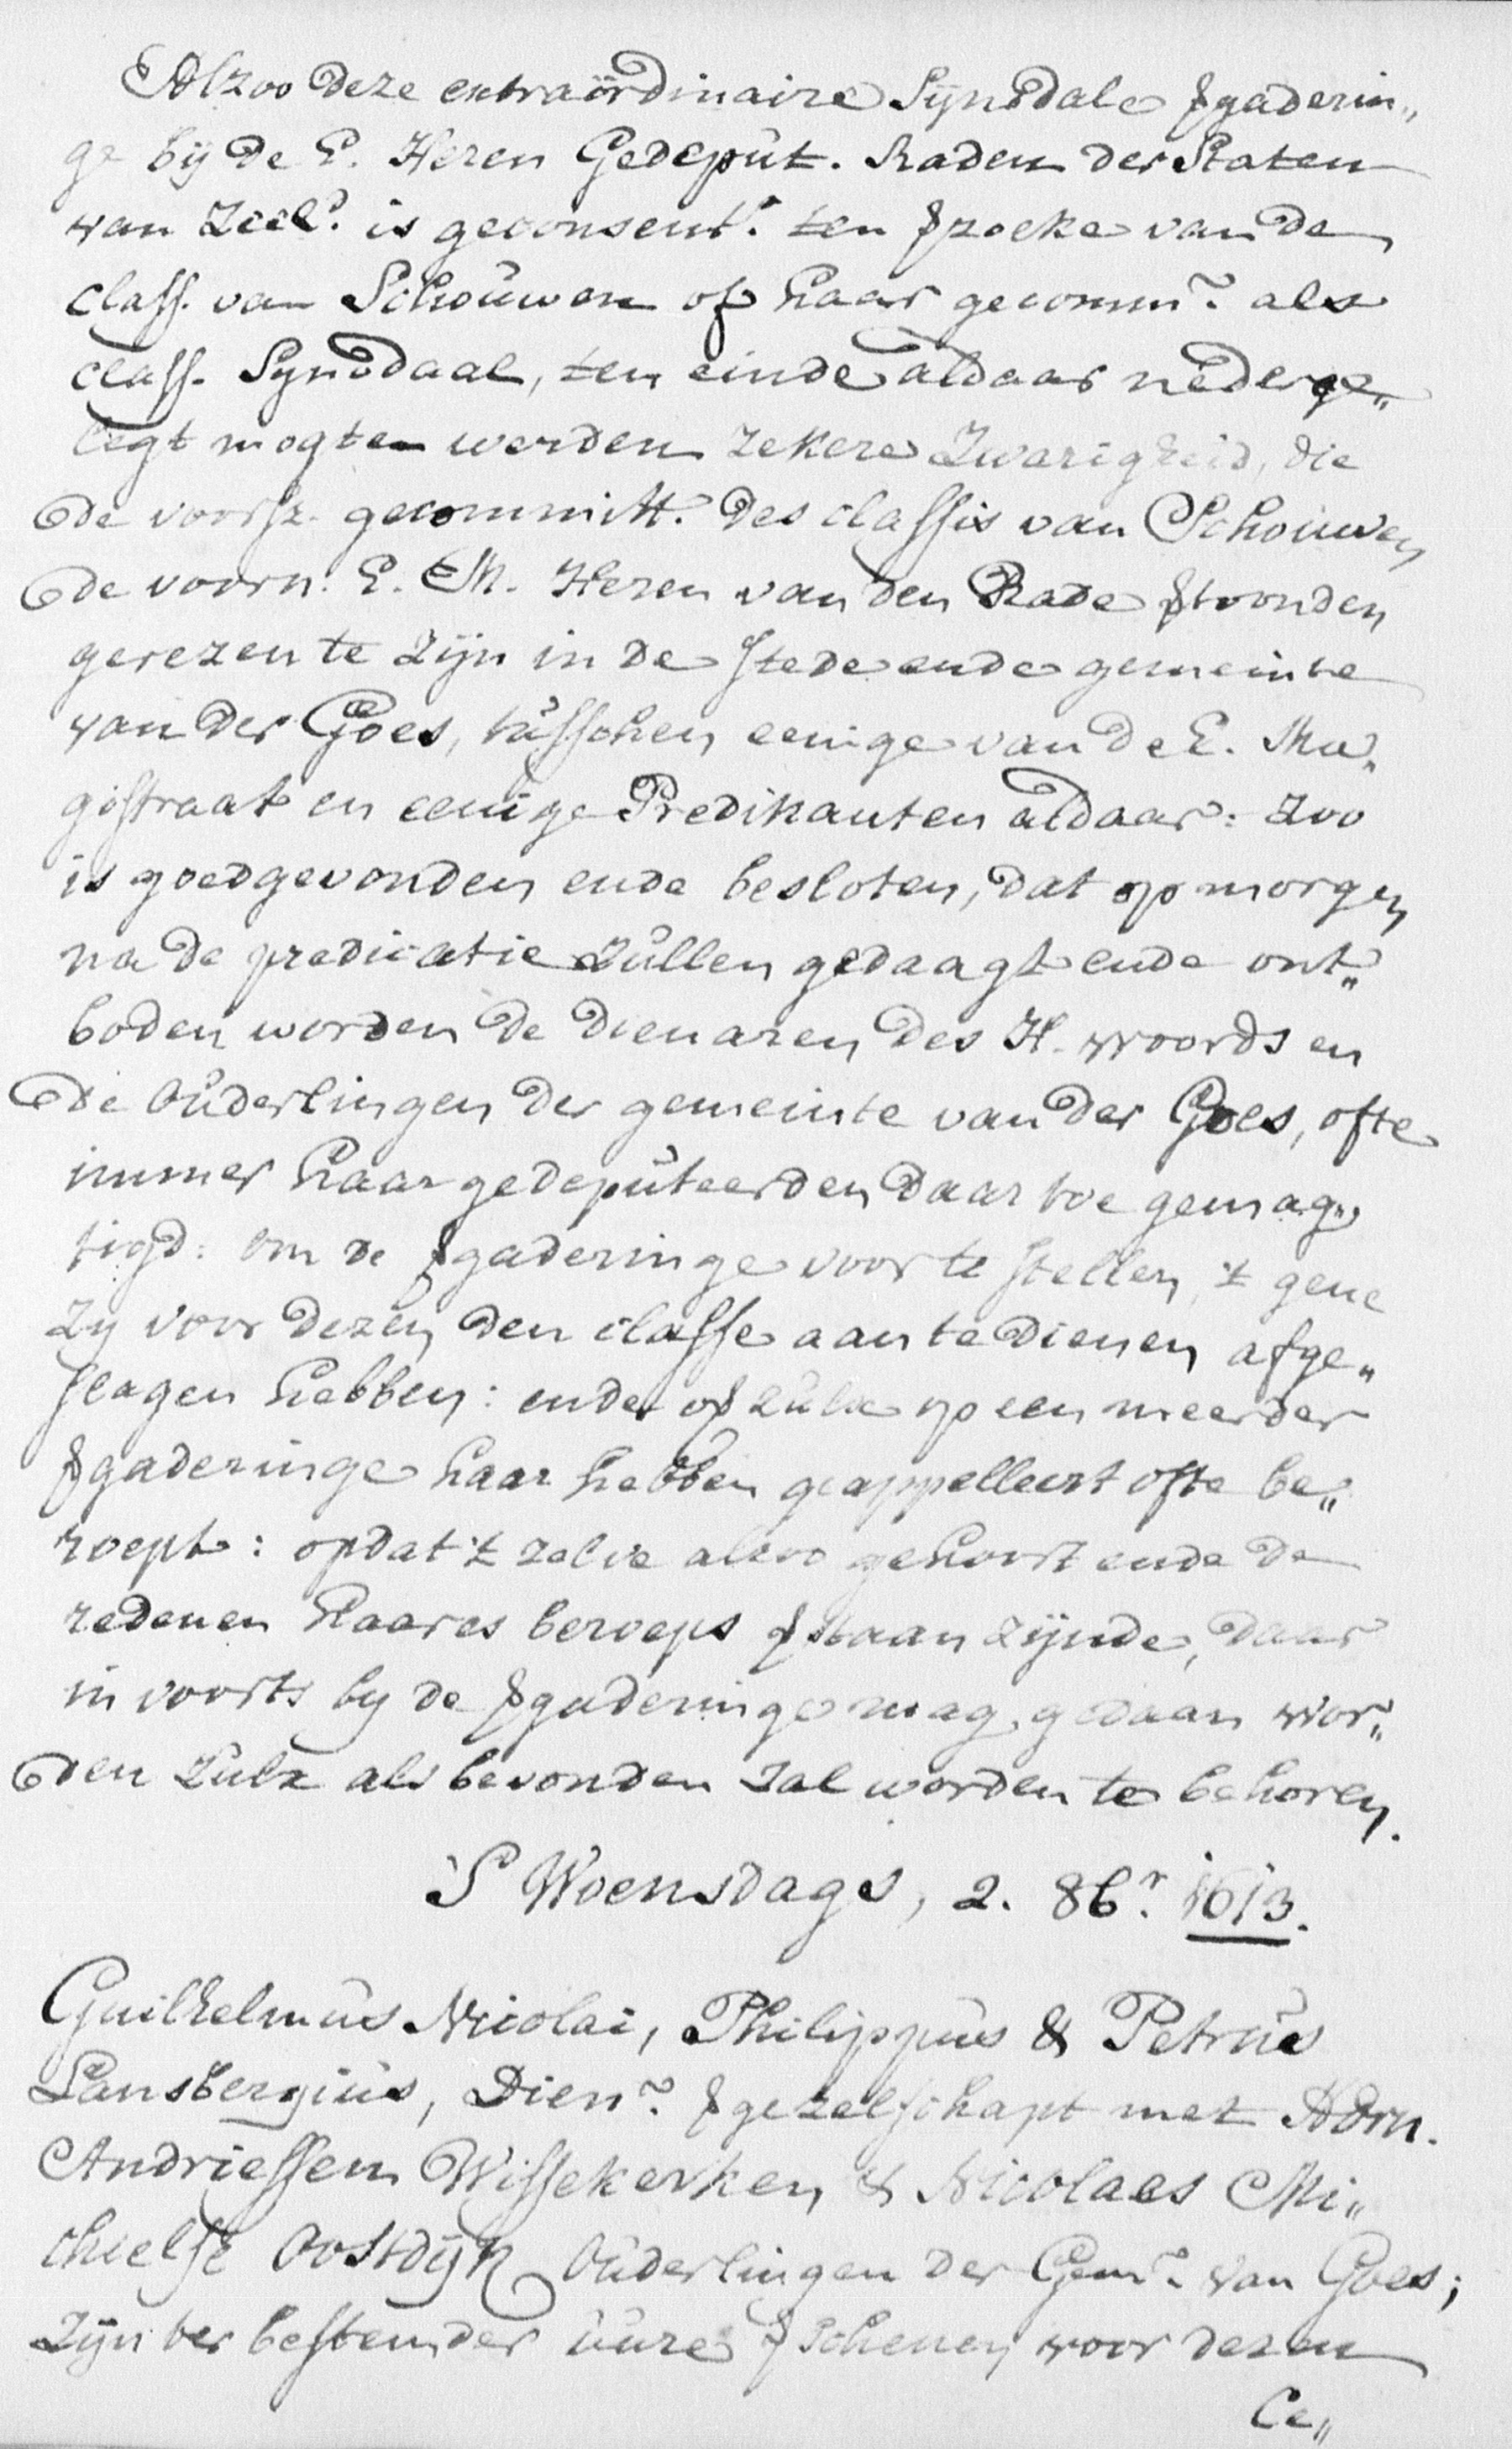 Alzoo deze extraördinaire Sÿnodale vgaderin„
ge bij de E. Heren Gedeput. Raden der Staten
van Zeel.d is geconsent.t ten vzoeke van de
Class. van Schouwen of haar gecomm.n als
class. Synodaal, ten einde aldaar nederge„
legt mogten werden zekere zwarigheid, die
de voorsz. gecommitt. des classis van Schouwen
de voorn. E. M. Heren van den Rade vtoonden
gerezen te zijn in de stede ende gemeinte
van der Goes, tusschen eenige van de E. Ma„
gistraat en eenige Predikanten aldaar: zoo
is goedgevonden ende besloten, dat op morgen
na de predicatie zullen gedaagt ende ont„
boden worden de dienaren des H. woords en
de Ouderlingen der gemeinte van der Goes, ofte
immer haar gedeputeerden daar toe gemag„
tigd: om de vgaderinge voor te stellen, 't gene
zy voor dezen den classe aan te dienen afge„
slagen hebben: ende of zulx op een meerder
vgaderinge haar hebben geappelleert ofte be„
roept: opdat 't zelve alzoo gehoort ende de
redenen haares beroeps vstaan zijnde, daar
in voorts by de vgaderinge mag gedaan wor„
den zulx als bevonden zal worden te behoren.
'S Woensdags, 2. 8b.r 1613.
Guilhelmus Nicolai, Philippus & Petrus
Lansbergius, Dien.n vgezelschapt met Adrn.
Andriessen Wissekerken & Nicolaes Mi„
chielse Oostdijk Ouderlingen der Gem.n van Goes;
zijn ter bestemder uure vschenen voor dezen
Ce„